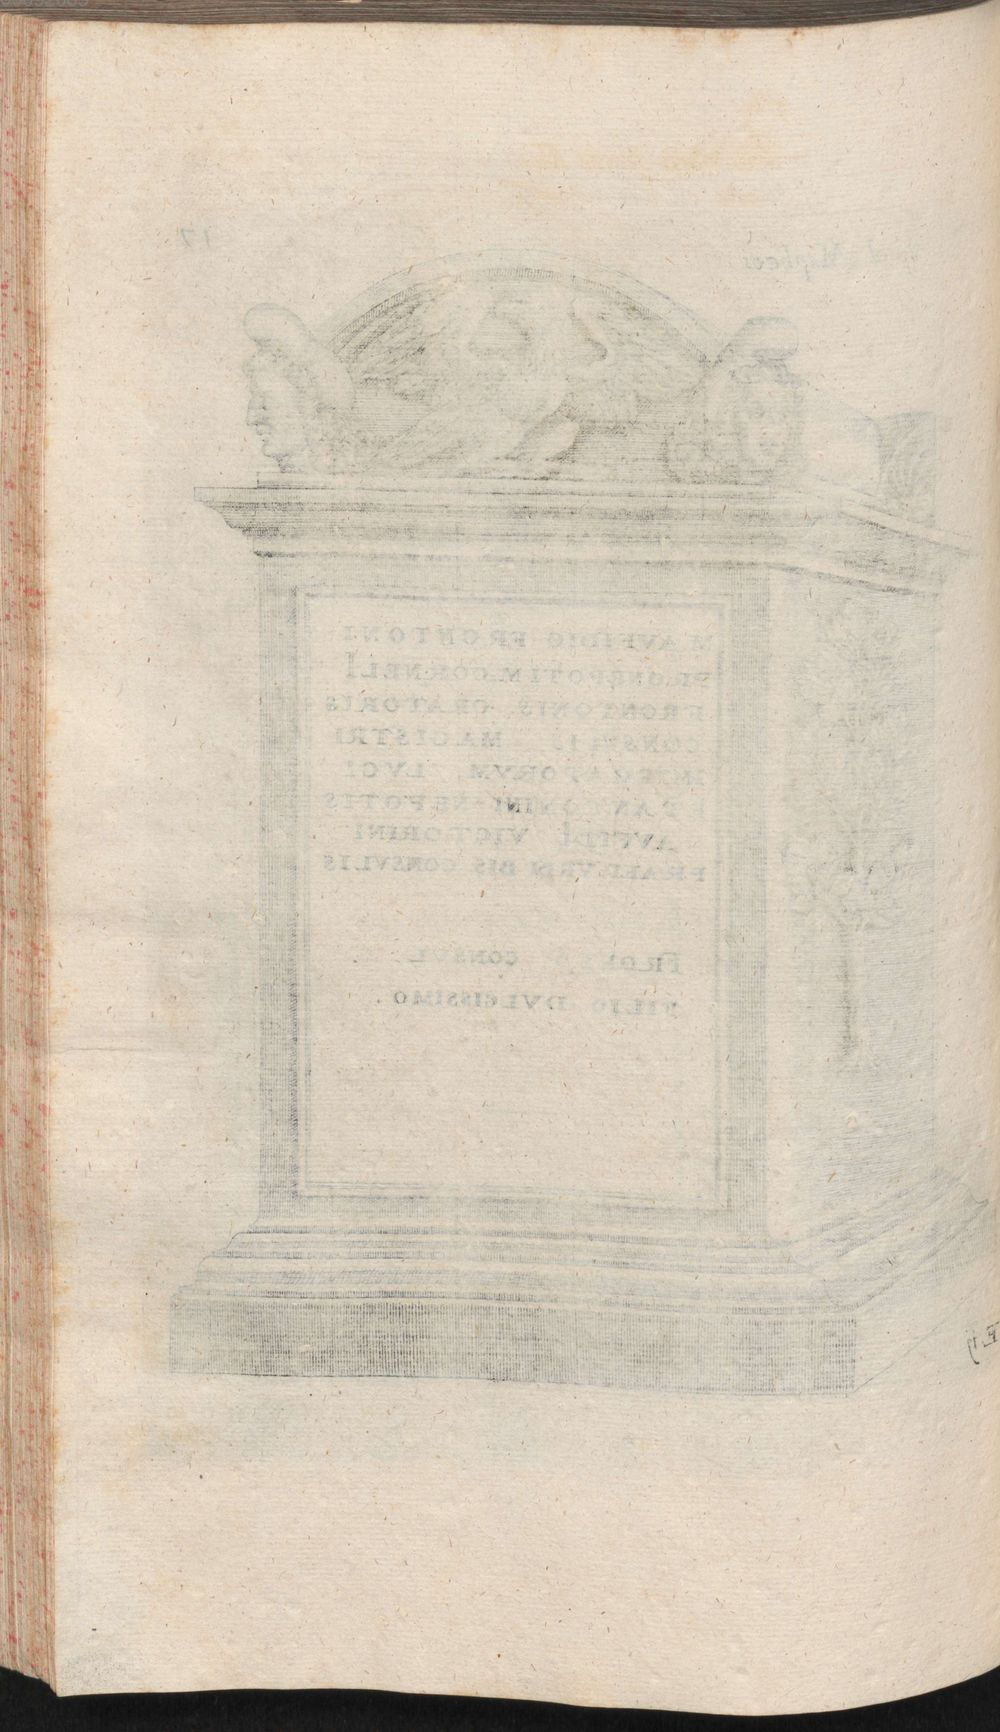 17
M AVFIDIO FRONTONI
PRONEPOTI M CORNELI
FRONTONIS ORATORIS
CONSVLIS MAGISTRI
IMPERATORVM LVCI
ET ANTONINI NEPOTIS
AVFIDI VICTORINI
PRAEF VRBI BIS CONSVLIS
FRONTO CONSVL
FILIO DVLCISSIMO.